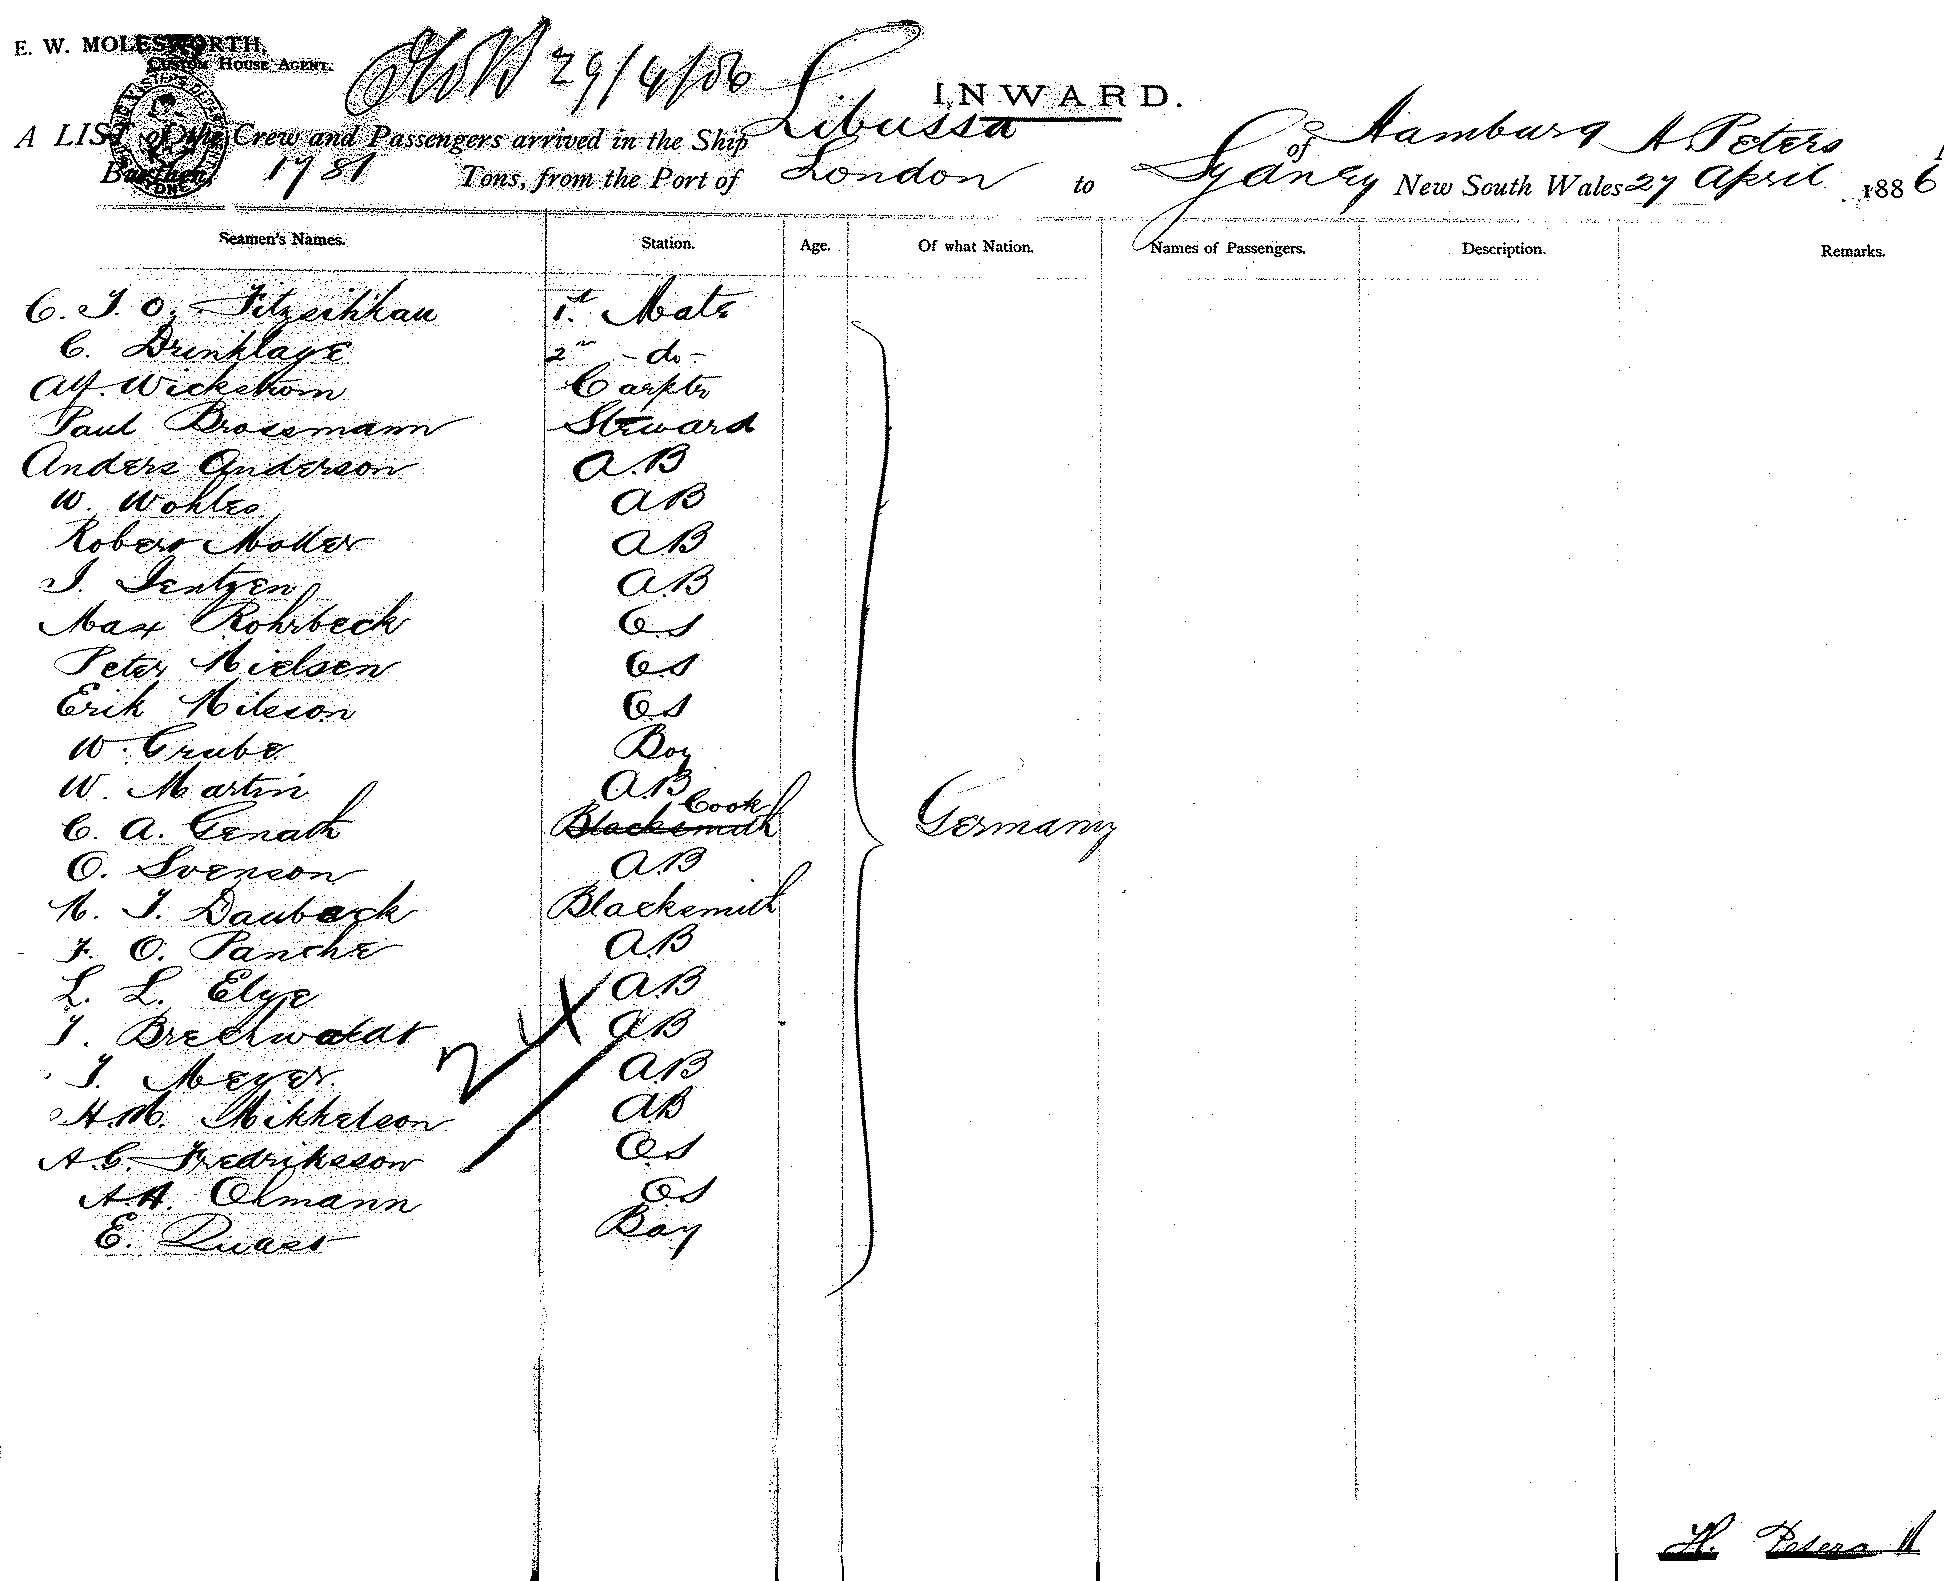 E. W. MOLESWORTH,
CUSTOM HOUSE AGENT.
29/4/86
INWARD.
A LIST of the Crew and Passengers arrived in the Ship Libussa of Hamburg H. Peters
Burthen, 1781 Tons, from the Port of London to Sydney New South Wales 27 April 1886
Seamen's Names. Station. Age. Of what Nation. Names of Passengers. Description. Remarks.
C. J. O. Fitzschkau 1st Mate
C. Drinklage 2nd - do -
Alf. Wickstrom Carptr
Paul Brossmann Steward
Anders Anderson A.B
W. Wohles AB
Robert Moller AB
J. Jentzen A.B
Max Rohrbeck OS
Peter Nielsen OS
Erik Nilsson OS
W. Grube Boy
W. Martin A.B
C. A. Genath Blacksmith Cook
Germany
O. Svenson AB
N. J. Dauback Blacksmith
F. O. Panche A.B
L. L. Elye A.B
J. Brechwoldt AB
J. Meyer A.B
H.M. Mikkelson AB
A.C. Fredriksson O.S
A.H. Olmann O.S
E. Quast Boy
24
H. Peters